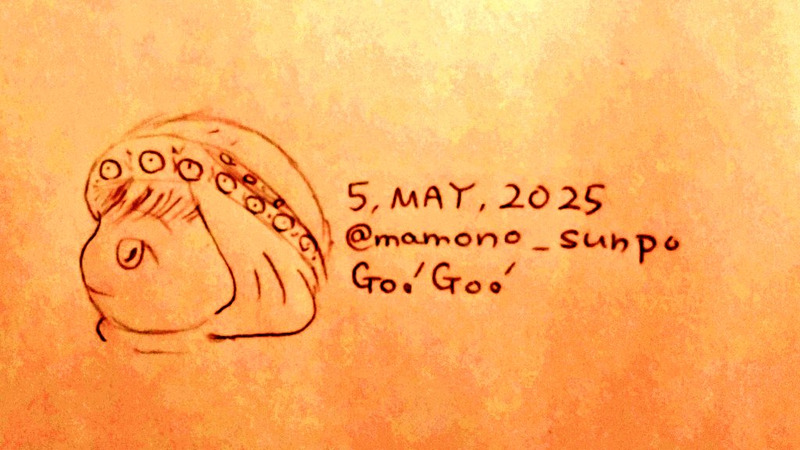 5, MAY, 2025
@mamono_sunpo
Go! Go!